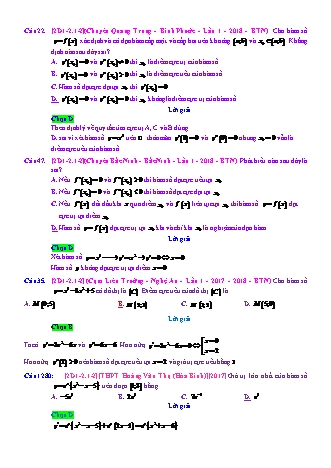 Câu 22. [2D1-2.1-2] (Chuyên Quang Trung - Bình Phước - Lần 1 - 2018 - BTN) Cho hàm số
y = f(x) xác định và có đạo hàm cấp một và cấp hai trên khoảng (a;b) và x₀ ∈ (a;b). Khẳng
định nào sau đây sai?
A. y'(x₀) = 0 và y''(x₀) ≠ 0 thì x₀ là điểm cực trị của hàm số
B. y'(x₀) = 0 và y''(x₀) > 0 thì x₀ là điểm cực tiểu của hàm số
C. Hàm số đạt cực đại tại x₀ thì y'(x₀) = 0
D. y'(x₀) = 0 và y''(x₀) = 0 thì x₀ không là điểm cực trị của hàm số
Lời giải
Chọn D
Theo định lý về quy tắc tìm cực trị A, C và B đúng
điểm cực tiểu của hàm số
Câu 47. [2D1-2.1-2] (Chuyên Bắc Ninh - Bắc Ninh - Lần 1 - 2018 - BTN) Phát biểu nào sau đây là
sai?
A. Nếu f'(x₀) = 0 và f''(x₀) > 0 thì hàm số đạt cực tiểu tại x₀
B. Nếu f'(x₀) = 0 và f''(x₀) < 0 thì hàm số đạt cực đại tại x₀
C. Nếu f'(x) đổi dấu khi x qua điểm x₀ và f(x) liên tục tại x₀ thì hàm số y = f(x) đạt
cực trị tại điểm x₀
D. Hàm số y = f(x) đạt cực trị tại x₀ khi và chỉ khi x₀ là nghiệm của đạo hàm
Lời giải
Chọn D
Xét hàm số y = x³ ⟶ y' = x² ⟶ y' = 0 ⇔ x = 0
Hàm số y không đạt cực trị tại điểm x = 0
Câu 35. [2D1-2.1-2] (Cụm Liên Trường - Nghệ An - Lần 1 - 2017 - 2018 - BTN) Cho hàm số
y = x³ - 3x² + 5 có đồ thị là (C). Điểm cực tiểu của đồ thị (C) là
A. M(0;5) B. M(2;1) C. M(1;2) D. M(5;0)
Lời giải
Chọn B
Ta có y' = 3x² - 6x và y'' = 6x - 6. Hơn nữa y' = 3x² - 6x = 0 ⇔ [x = 0; x = 2
Hơn nữa y''(2) > 0 nên hàm số đạt cực tiểu tại x = 2 và giá trị cực tiểu bằng 1
Câu 1280: [2D1-2.1-2] [THPT Hoàng Văn Thụ (Hòa Bình)] [2017] Giá trị lớn nhất của hàm số
y = eˣ(x² - x - 5) trên đoạn [1;3] bằng
A. -5e³ B. 2e³ C. 7e⁻² D. e³
Lời giải
Chọn D
y' = eˣ(x² - x - 5) + eˣ(2x - 1) = eˣ(x² + x - 6)